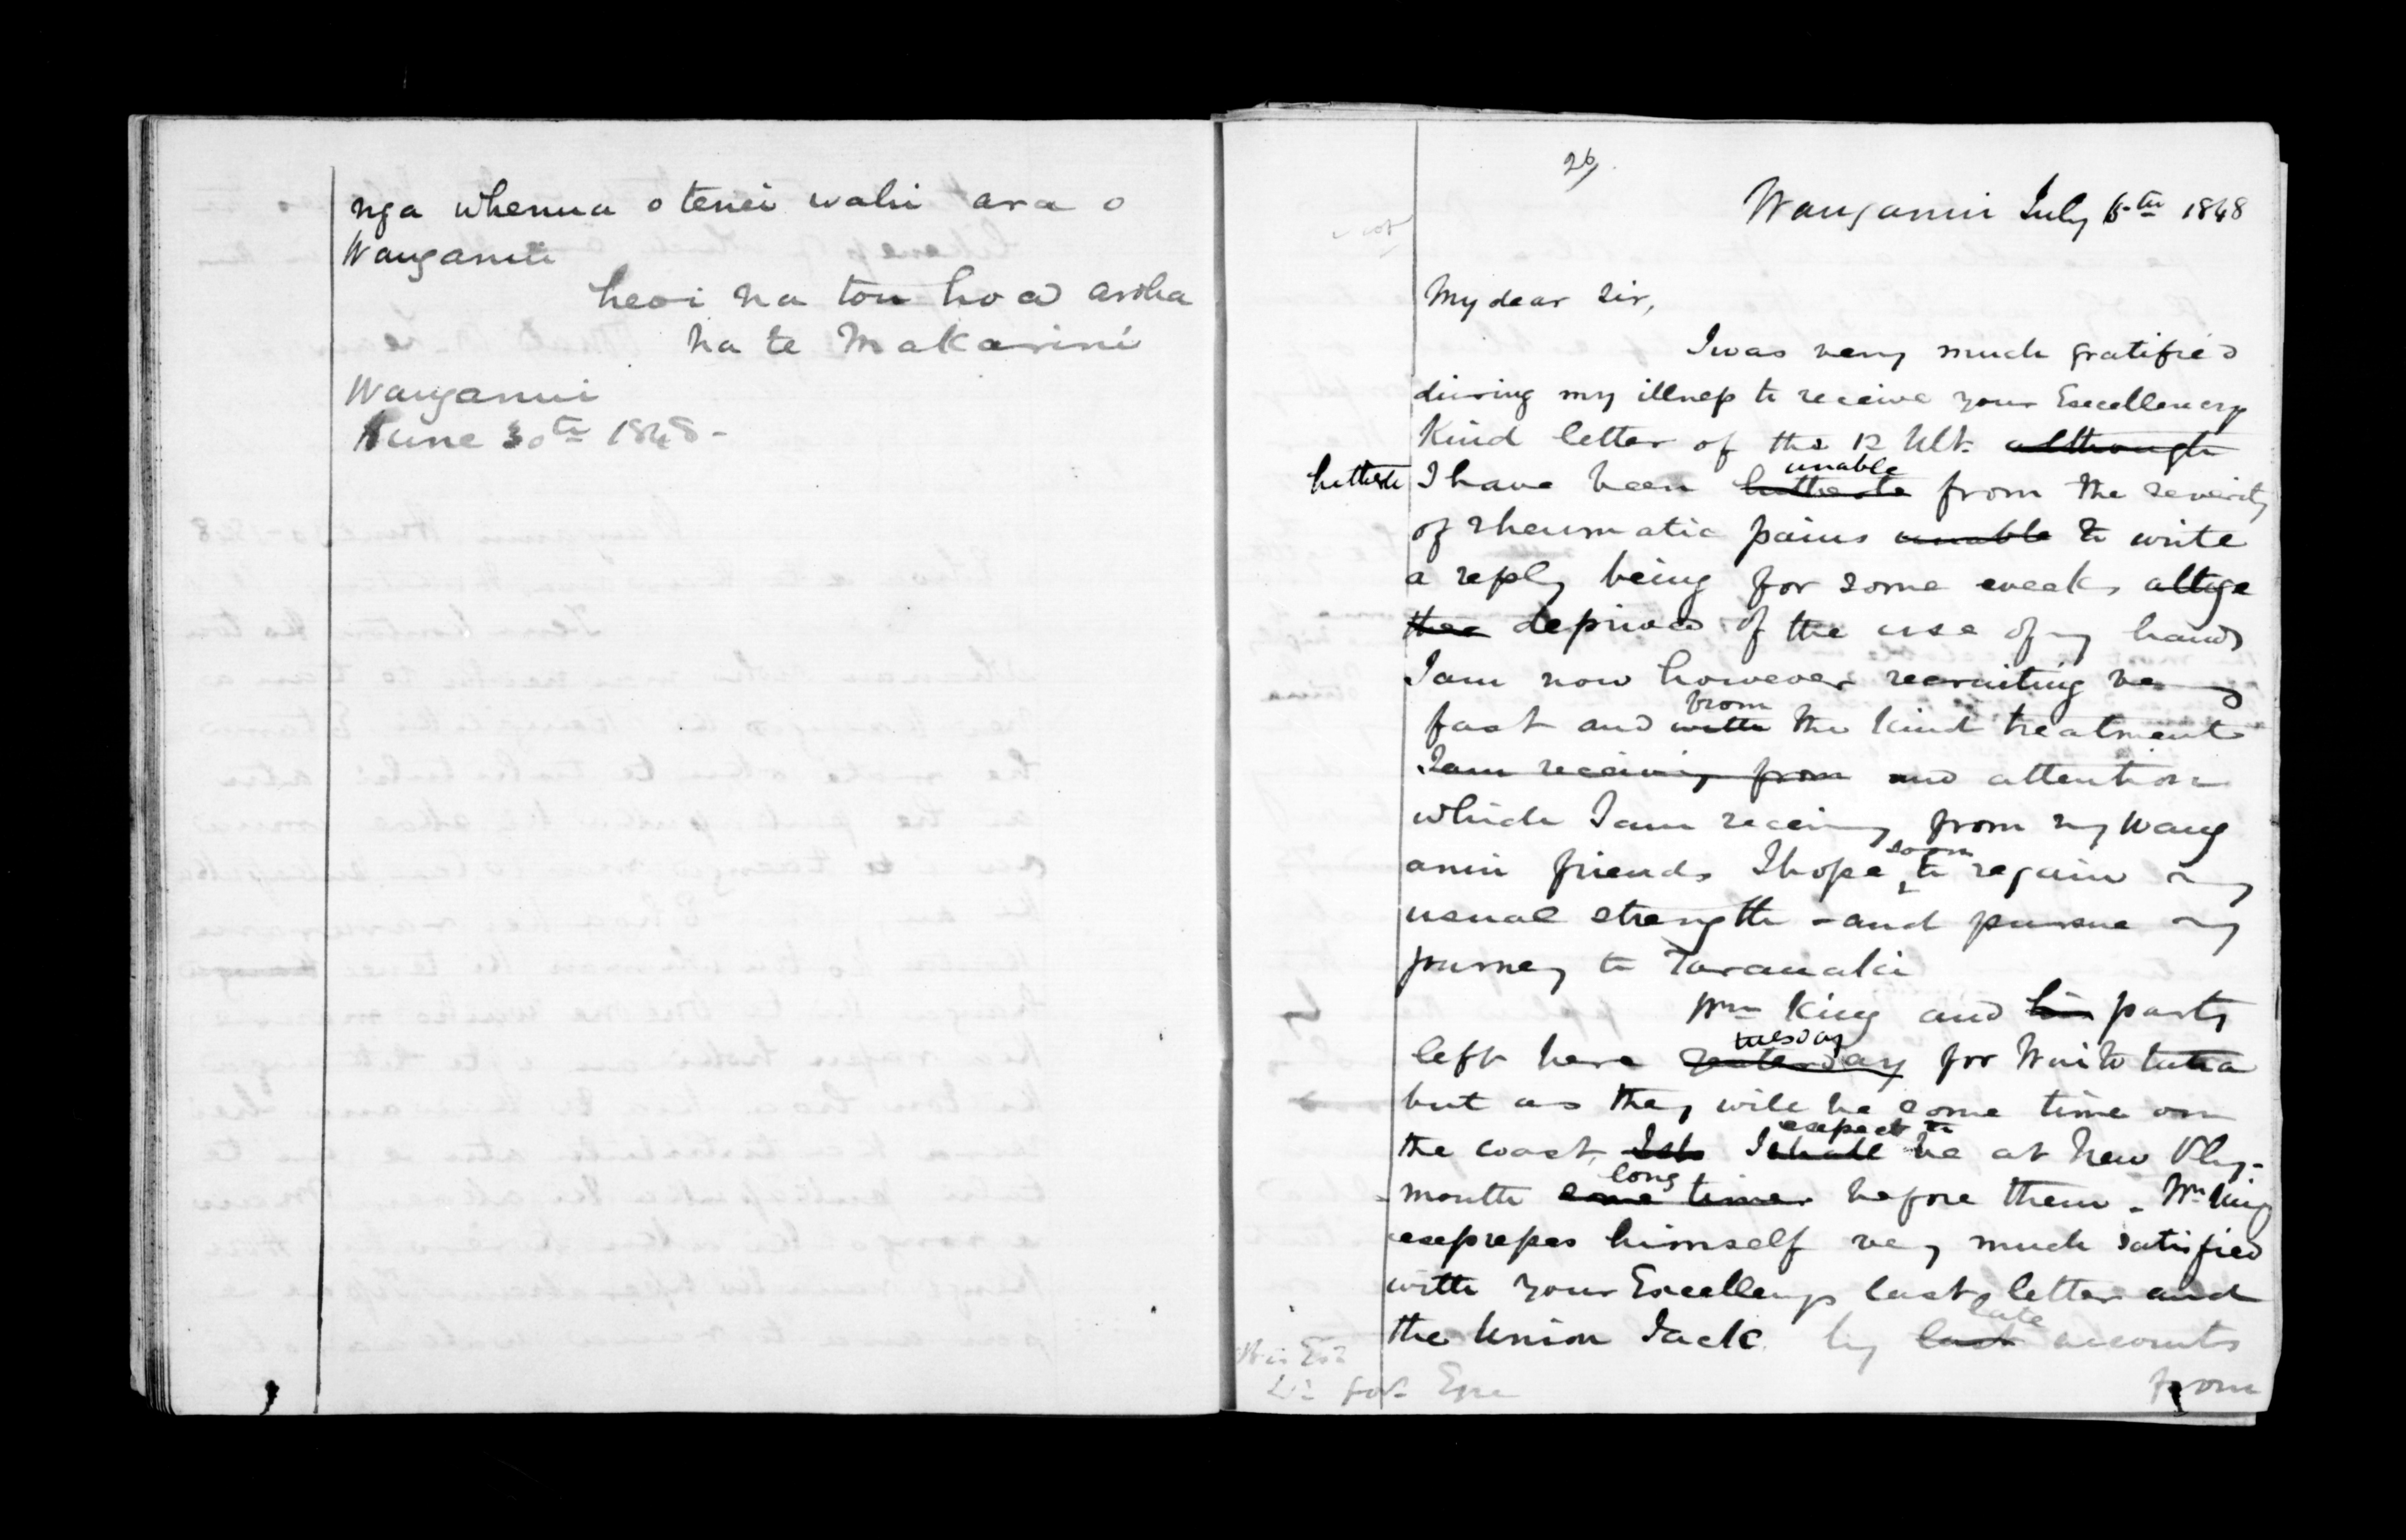 nga whenua o tenei wahi ara o
Wanganui
heoi na tou hoa aroha
na te Makarini
Wanganui
June 30th 1848 -
26/.
Wanganui July 6th 1848
My dear Sir,
I was very much gratified
during my illness to receive your Excellencys
kind letter of the 12 Ult. although
hitherto I have been hitherto unable from the severity
of rheumatic pains unable to write
a reply being for some weeks altoge
ther deprived of the use of my hands
I am now however recruiting very
fast and with from the kind treatment
I am receiving from and attention
which I am receiving from my Wang
anui friends I hope soon to regain my
usual strength and pursue my
journey to Taranaki
Wm King and his party
left here yesterday tuesday for Waitotara
but as they will be some time on
the coast, I sh I shall expect to be at New Ply-
mouth some time long before them - Wm King
expresses himself very much satisfied
with your Excellencys last letter and
the Union Jack. by last late accounts
from
His Exy
Lt Govr Eyre